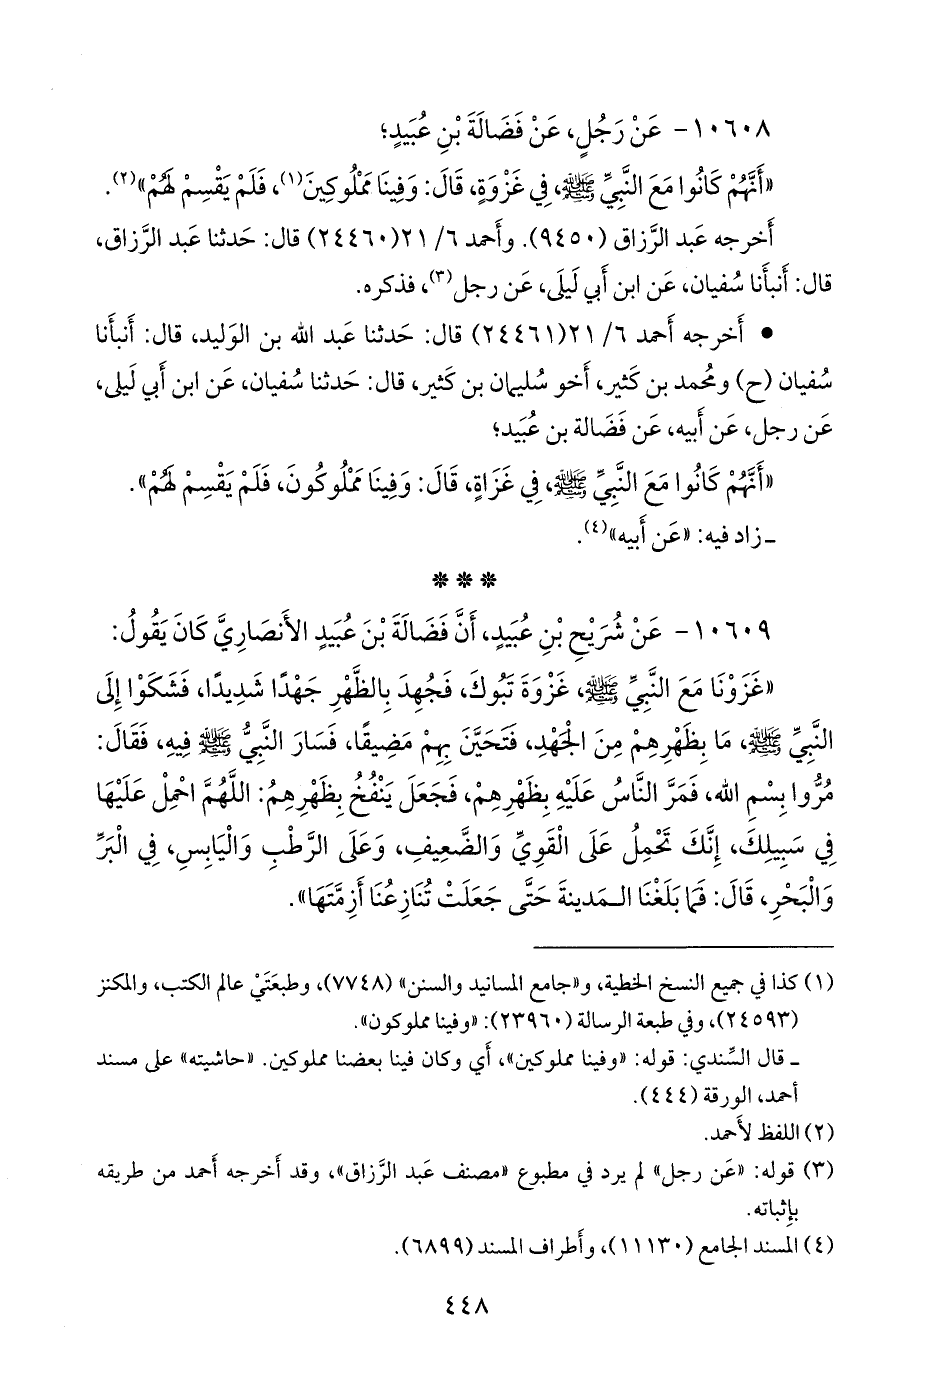 ١٠٦٠٨ - عَنْ رَجُلٍ، عَنْ فَضَالَةَ بْنِ عُبَيدٍ؛
«أَنَّهُمْ كَانُوا مَعَ النَّبِيِّ ﷺ، فِي غَزْوَةٍ، قَالَ: وَفِينَا مَمْلُوكِينَ(١)، فَلَمْ يَقْسِمْ لَهُمْ»(٢).
أَخرجه عَبد الرَّزاق (٩٤٥٠). وأَحمد ٦/ ٢١(٢٤٤٦٠) قال: حَدثنا عَبد الرَّزاق،
قال: أَنبأَنا سُفيان، عَن ابن أَبي لَيلَى، عَن رجل(٣)، فذكره.
• أَخرجه أَحمد ٦/ ٢١(٢٤٤٦١) قال: حَدثنا عَبد الله بن الوَليد، قال: أَنبأَنا
سُفيان (ح) ومُحمد بن كَثير، أَخو سُليمان بن كَثير، قال: حَدثنا سُفيان، عَن ابن أَبي لَيلَى،
عَن رجل، عَن أَبيه، عَن فَضَالة بن عُبَيد؛
«أَنَّهُمْ كَانُوا مَعَ النَّبِيِّ ﷺ، فِي غَزَاةٍ، قَالَ: وَفِينَا مَمْلُوكُونَ، فَلَمْ يَقْسِمْ لَهُمْ».
ـ زاد فيه: «عَن أَبيه»(٤).
* * *
١٠٦٠٩ - عَنْ شُرَيْحِ بْنِ عُبَيدٍ، أَنَّ فَضَالَةَ بْنَ عُبَيدٍ الأَنصَارِيَّ كَانَ يَقُولُ:
«غَزَوْنَا مَعَ النَّبِيِّ ﷺ، غَزْوَةَ تَبُوكَ، فَجُهِدَ بِالظَّهْرِ جَهْدًا شَدِيدًا، فَشَكَوْا إِلَى
النَّبِيِّ ﷺ، مَا بِظَهْرِهِمْ مِنَ الْجَهْدِ، فَتَحَيَّنَ بِهِمْ مَضِيقًا، فَسَارَ النَّبِيُّ ﷺ فِيهِ، فَقَالَ:
مُرُّوا بِسْمِ الله، فَمَرَّ النَّاسُ عَلَيْهِ بِظَهْرِهِمْ، فَجَعَلَ يَنْفُخُ بِظَهْرِهِمُ: اللَّهُمَّ احْمِلْ عَلَيْهَا
فِي سَبِيلِكَ، إِنَّكَ تَحْمِلُ عَلَى الْقَوِيِّ وَالضَّعِيفِ، وَعَلَى الرَّطْبِ وَالْيَابِسِ، فِي الْبَرِّ
وَالْبَحْرِ، قَالَ: فَمَا بَلَغْنَا الـمَدينةَ حَتَّى جَعَلَتْ تُنَازِعُنَا أَزِمَّتَهَا».
(١) كذا في جميع النسخ الخطية، و«جامع المسانيد والسنن» (٧٧٤٨)، وطبعَتَيْ عالم الكتب، والمكنز
(٢٤٥٩٣)، وفي طبعة الرسالة (٢٣٩٦٠): «وفينا مملوكون».
ـ قال السِّندي: قوله: «وفينا مملوكين»، أَي وكان فينا بعضنا مملوكين. «حاشيته» على مسند
أحمد، الورقة (٤٤٤).
(٢) اللفظ لأَحمد.
(٣) قوله: «عَن رجل» لم يرد في مطبوع «مصنف عبد الرَّزاق»، وقد أَخرجه أَحمد من طريقه
بإِثباته.
(٤) المسند الجامع (١١١٣٠)، وأَطراف المسند (٦٨٩٩).
٤٤٨